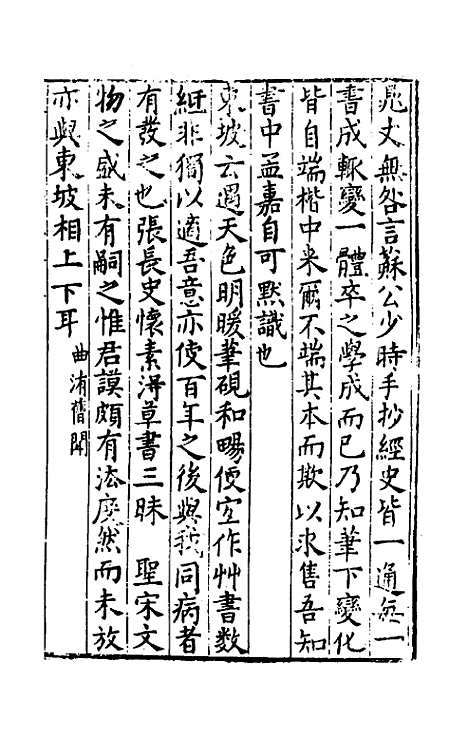 晁丈無咎言蘇公少時手抄經史皆一通每一
書成輒變一體卒之學成而已乃知筆下變化
皆自端楷中来爾不端其本而欺以求售吾知
書中孟嘉自可默識也
東坡云遇天色明暖筆硯和暢便宜作艸書數
紙非獨以適吾意亦使百年之後與我同病者
有發之也張長史懷素得草書三昧　聖宋文
物之盛未有嗣之惟君謨頗有法度然而未放
亦與東坡相上下耳　曲洧舊聞